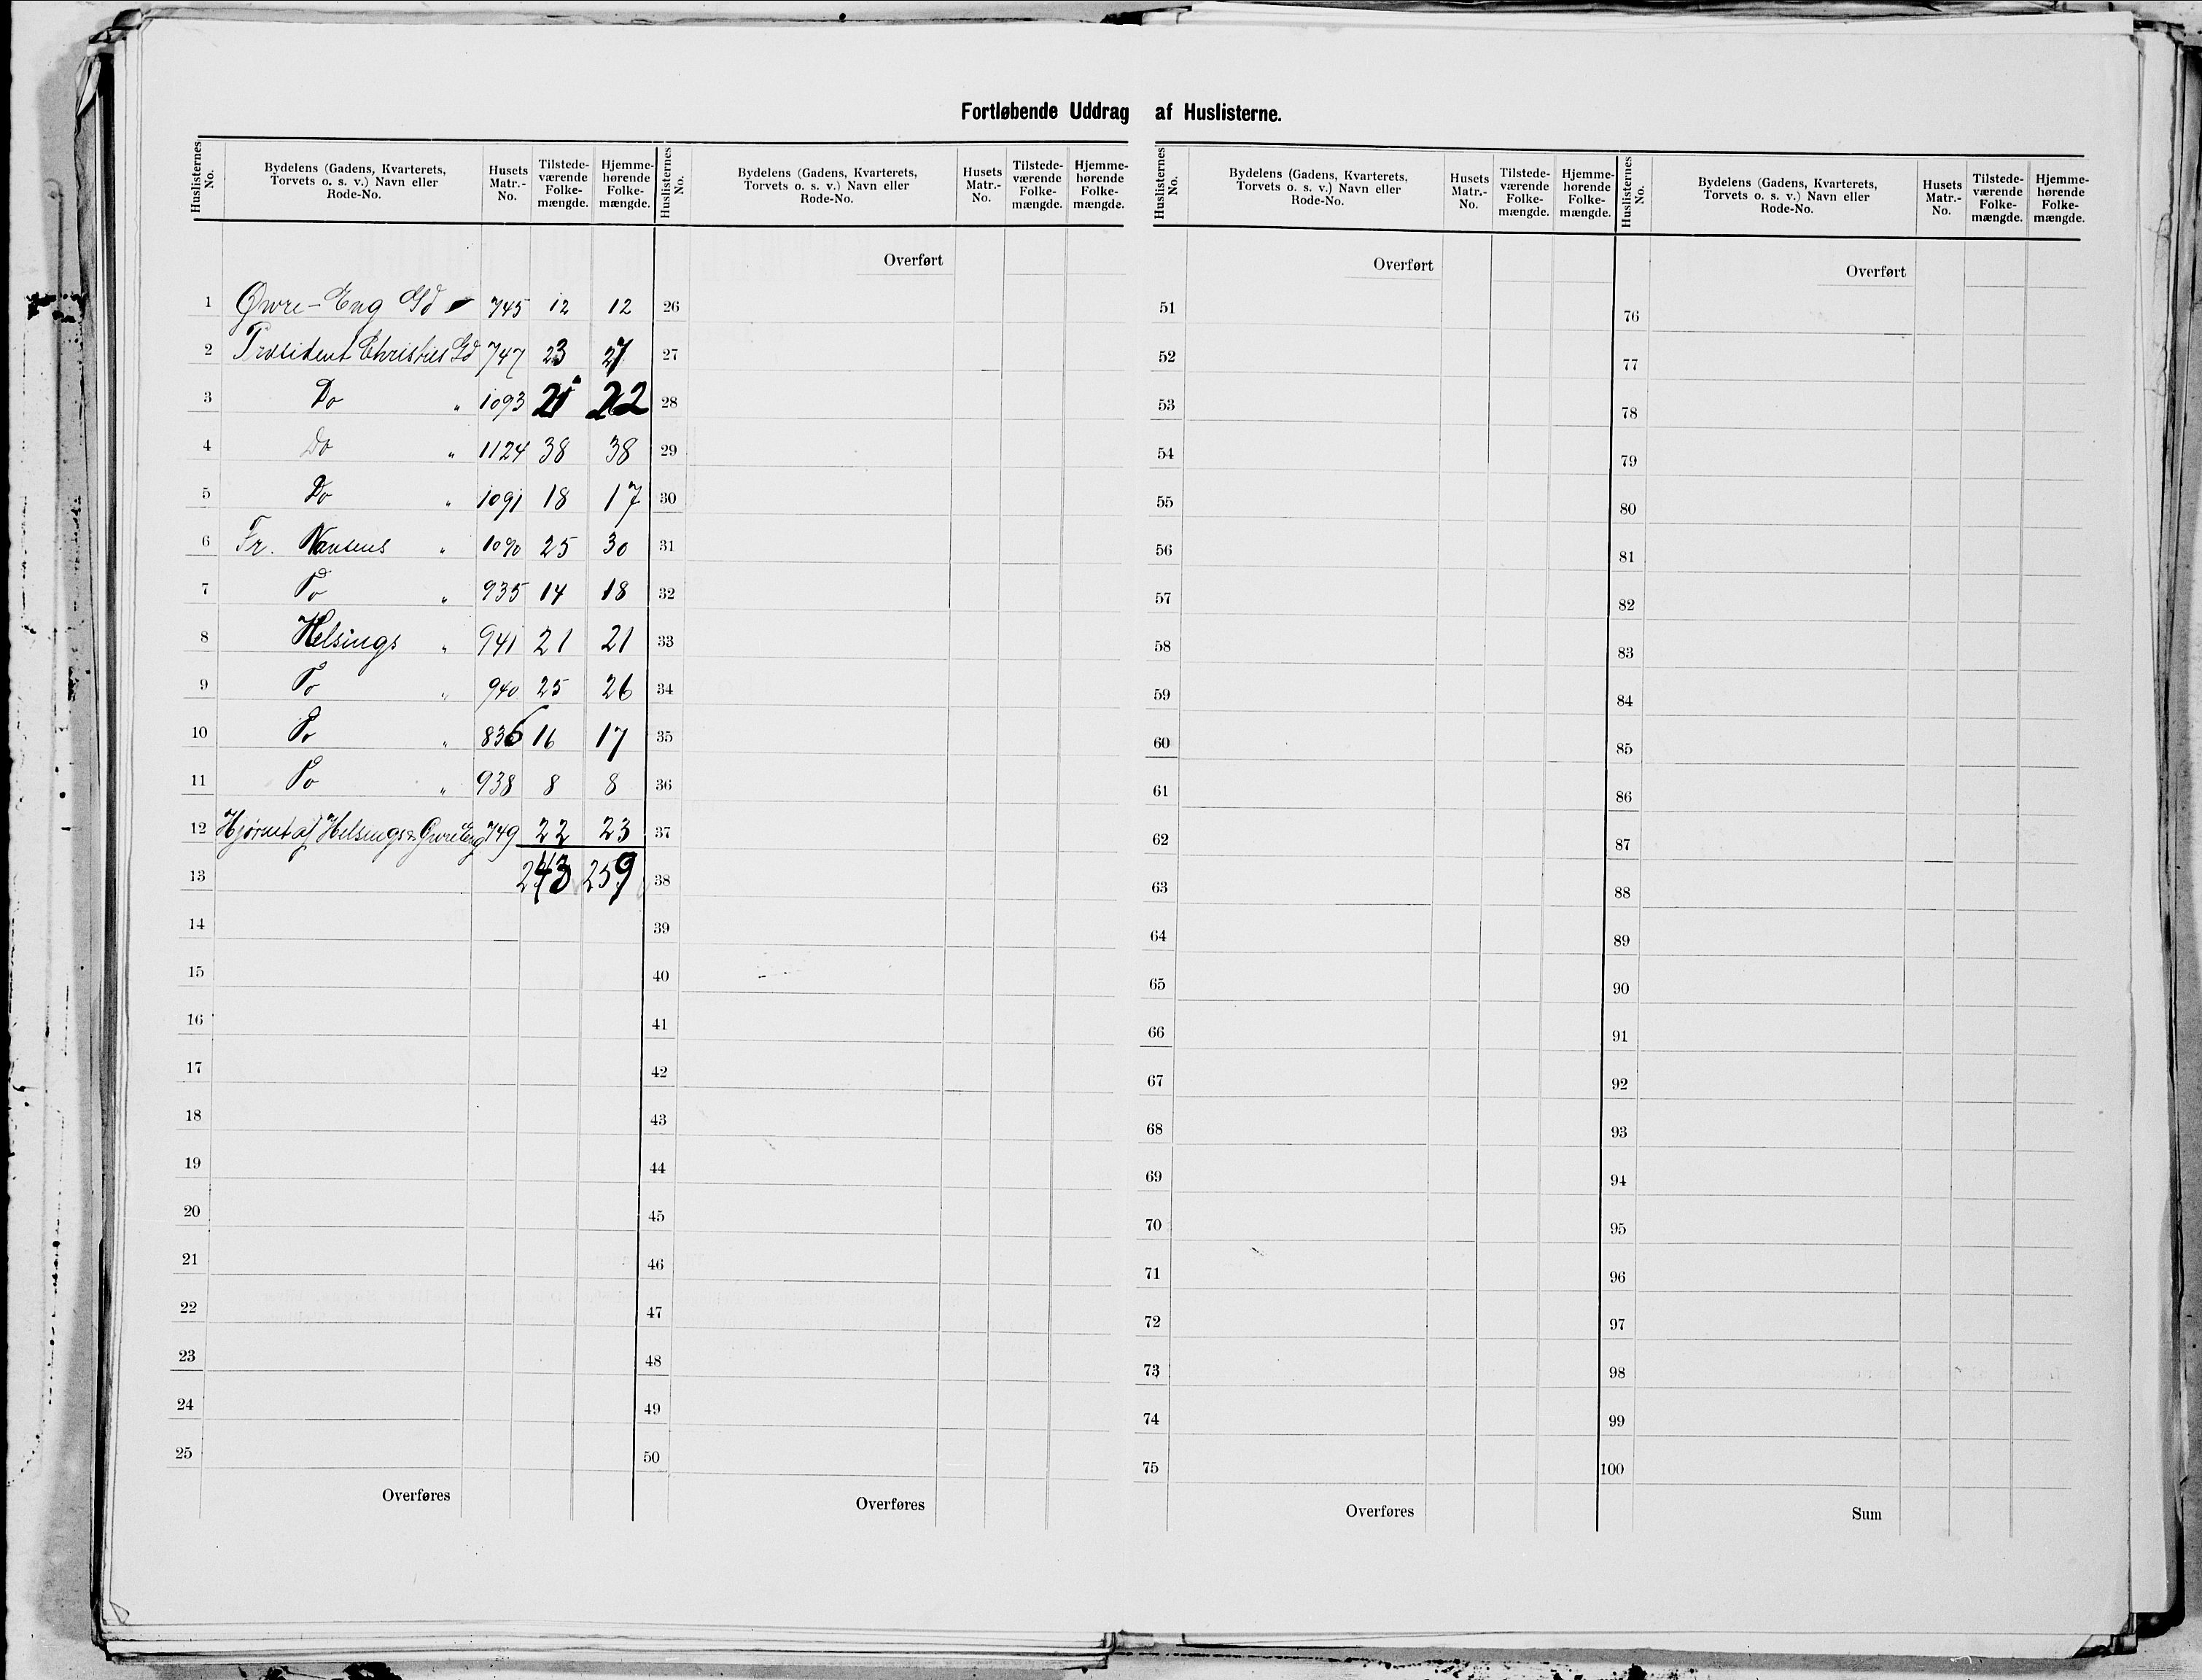 Fortløbende Uddrag af Huslisterne.
Huslisternes No. Bydelens (Gadens, Kvarterets, Torvets o. s. v.) Navn eller Rode-No. Husets Matr.-No. Tilstede-værende Folke-mængde. Hjemme-hørende Folke-mængde.
1 Øvre-Eng Gd 745 12 12
2 Præsident Christies Gd 747 23 27
3 Do „ 1093 21 22
4 Do „ 1124 38 38
5 Do „ 1091 18 17
6 Fr. Nansens „ 1090 25 30
7 Do „ 935 14 18
8 Helsings „ 941 21 21
9 Do „ 940 25 26
10 Do „ 836 16 17
11 Do „ 938 8 8
12 Hjørnet af Helsings & Øvre Eng 749 22 23
13 243 259
14
15
16
17
18
19
20
21
22
23
24
25
Overføres
Huslisternes No. Bydelens (Gadens, Kvarterets, Torvets o. s. v.) Navn eller Rode-No. Husets Matr.-No. Tilstede-værende Folke-mængde. Hjemme-hørende Folke-mængde.
Overført
26
27
28
29
30
31
32
33
34
35
36
37
38
39
40
41
42
43
44
45
46
47
48
49
50
Overføres
Huslisternes No. Bydelens (Gadens, Kvarterets, Torvets o. s. v.) Navn eller Rode-No. Husets Matr.-No. Tilstede-værende Folke-mængde. Hjemme-hørende Folke-mængde.
Overført
51
52
53
54
55
56
57
58
59
60
61
62
63
64
65
66
67
68
69
70
71
72
73
74
75
Overføres
Huslisternes No. Bydelens (Gadens, Kvarterets, Torvets o. s. v.) Navn eller Rode-No. Husets Matr.-No. Tilstede-værende Folke-mængde. Hjemme-hørende Folke-mængde.
Overført
76
77
78
79
80
81
82
83
84
85
86
87
88
89
90
91
92
93
94
95
96
97
98
99
100
Sum